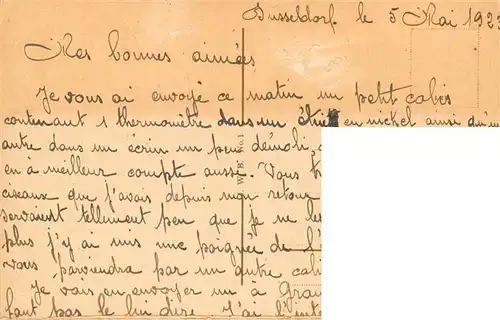 Dusseldorf le 5 Mai 1923
Mes bonnes aimées
Je vous ai envoyé ce matin un petit colis
contenant 1 thermomètre dans un étui en nickel ainsi qu'un
autre dans un écrin un peu démoli,
en à meilleur compte aussi. Vous
ciseaux que j'avais depuis mon retour
servaient tellement peu que je ne les
plus j'y ai mis une poignée de
vous parviendra par un autre
Je vais en envoyer un à
faut pas le lui dire. J'ai
W. B. No. 1